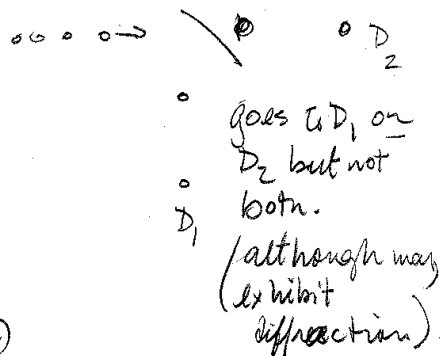 D2
goes to D1 or
D2 but not
both.
D1
(although may
exhibit
diffraction).